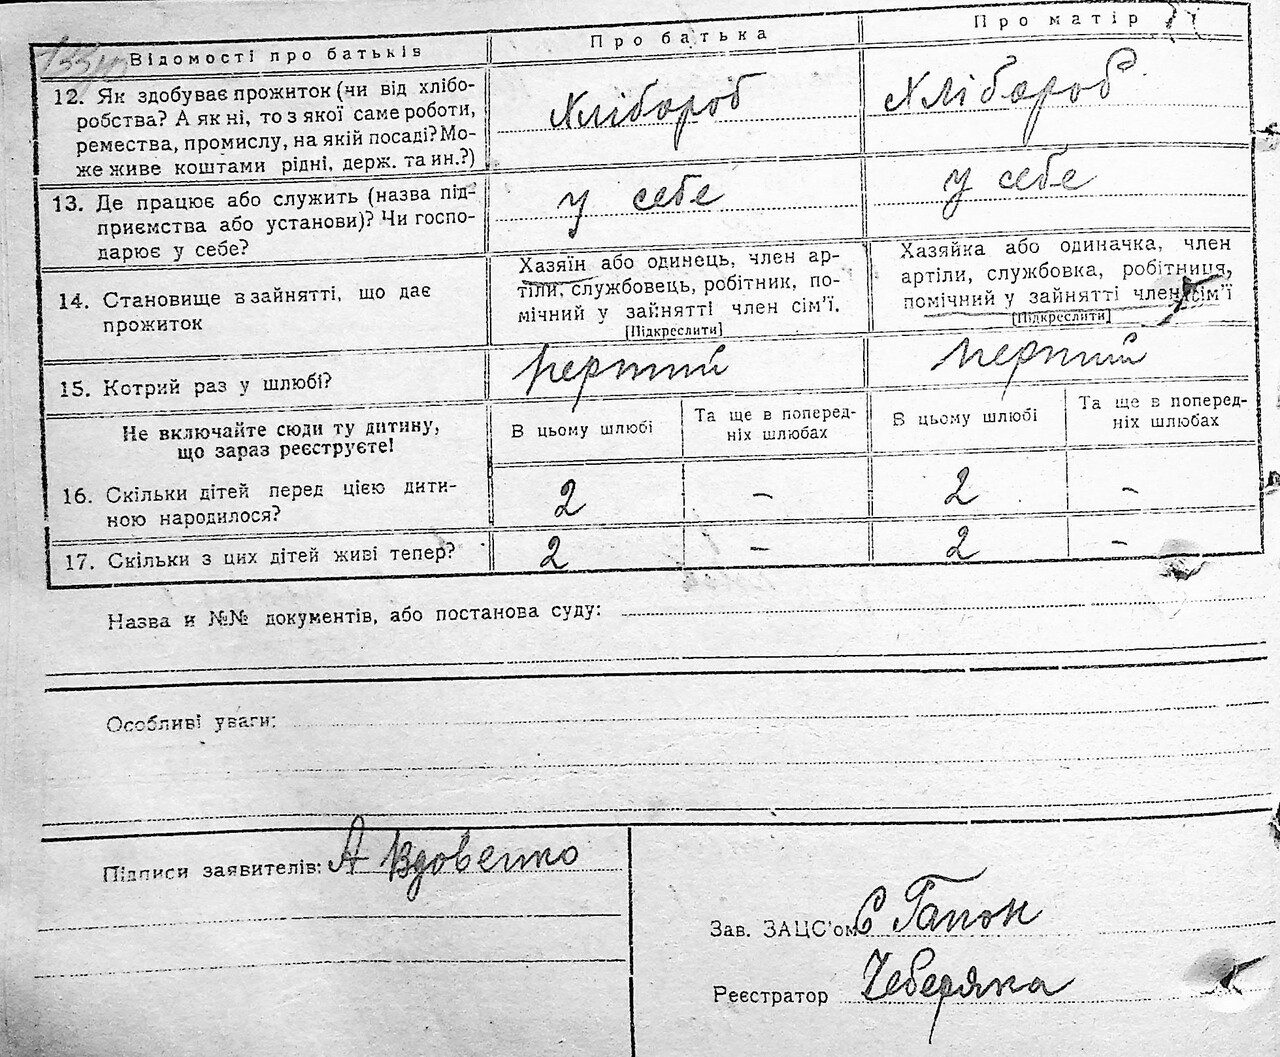 Відомості про батьків
Про батька
Про матір
12. Як здобуває прожиток (чи від хлібо-
робства? А як ні, то з якої саме роботи,
ремества, промислу, на якій посаді? Мо-
же живе коштами рідні, держ. та ин.?)
Хлібороб
Хлібороб
13. Де працює або служить (назва під-
приємства або установи)? Чи госпо-
дарює у себе?
у себе
у себе
14. Становище в зайнятті, що дає
прожиток
Хазяїн або одинець, член ар-
тіли, службовець, робітник, по-
мічний у зайнятті член сім'ї.
[Підкреслити]
Хазяйка або одиначка, член
артіли, службовка, робітниця,
помічний у зайнятті член сім'ї
[Підкреслити]
15. Котрий раз у шлюбі?
перший
перший
Не включайте сюди ту дитину,
що зараз реєструєте!
В цьому шлюбі
Та ще в поперед-
ніх шлюбах
В цьому шлюбі
Та ще в поперед-
ніх шлюбах
16. Скільки дітей перед цією дити-
ною народилося?
2
-
2
-
17. Скільки з цих дітей живі тепер?
2
-
2
-
Назва и №№ документів, або постанова суду:
Особливі уваги:
Підписи заявителів: А Вдовенко
Зав. ЗАЦС'ом С Гапон
Реєстратор Чеберяка